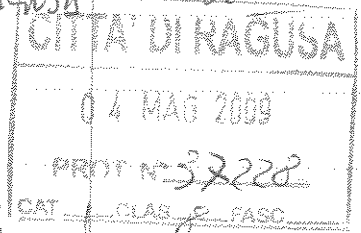 CITTA' DI RAGUSA
04 MAG 2009
PROT N° 37228
CAT CLAS FASC